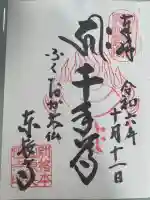 奉拝
令和六年
十月十一日
千手尊
ふくおか大仏
東長寺